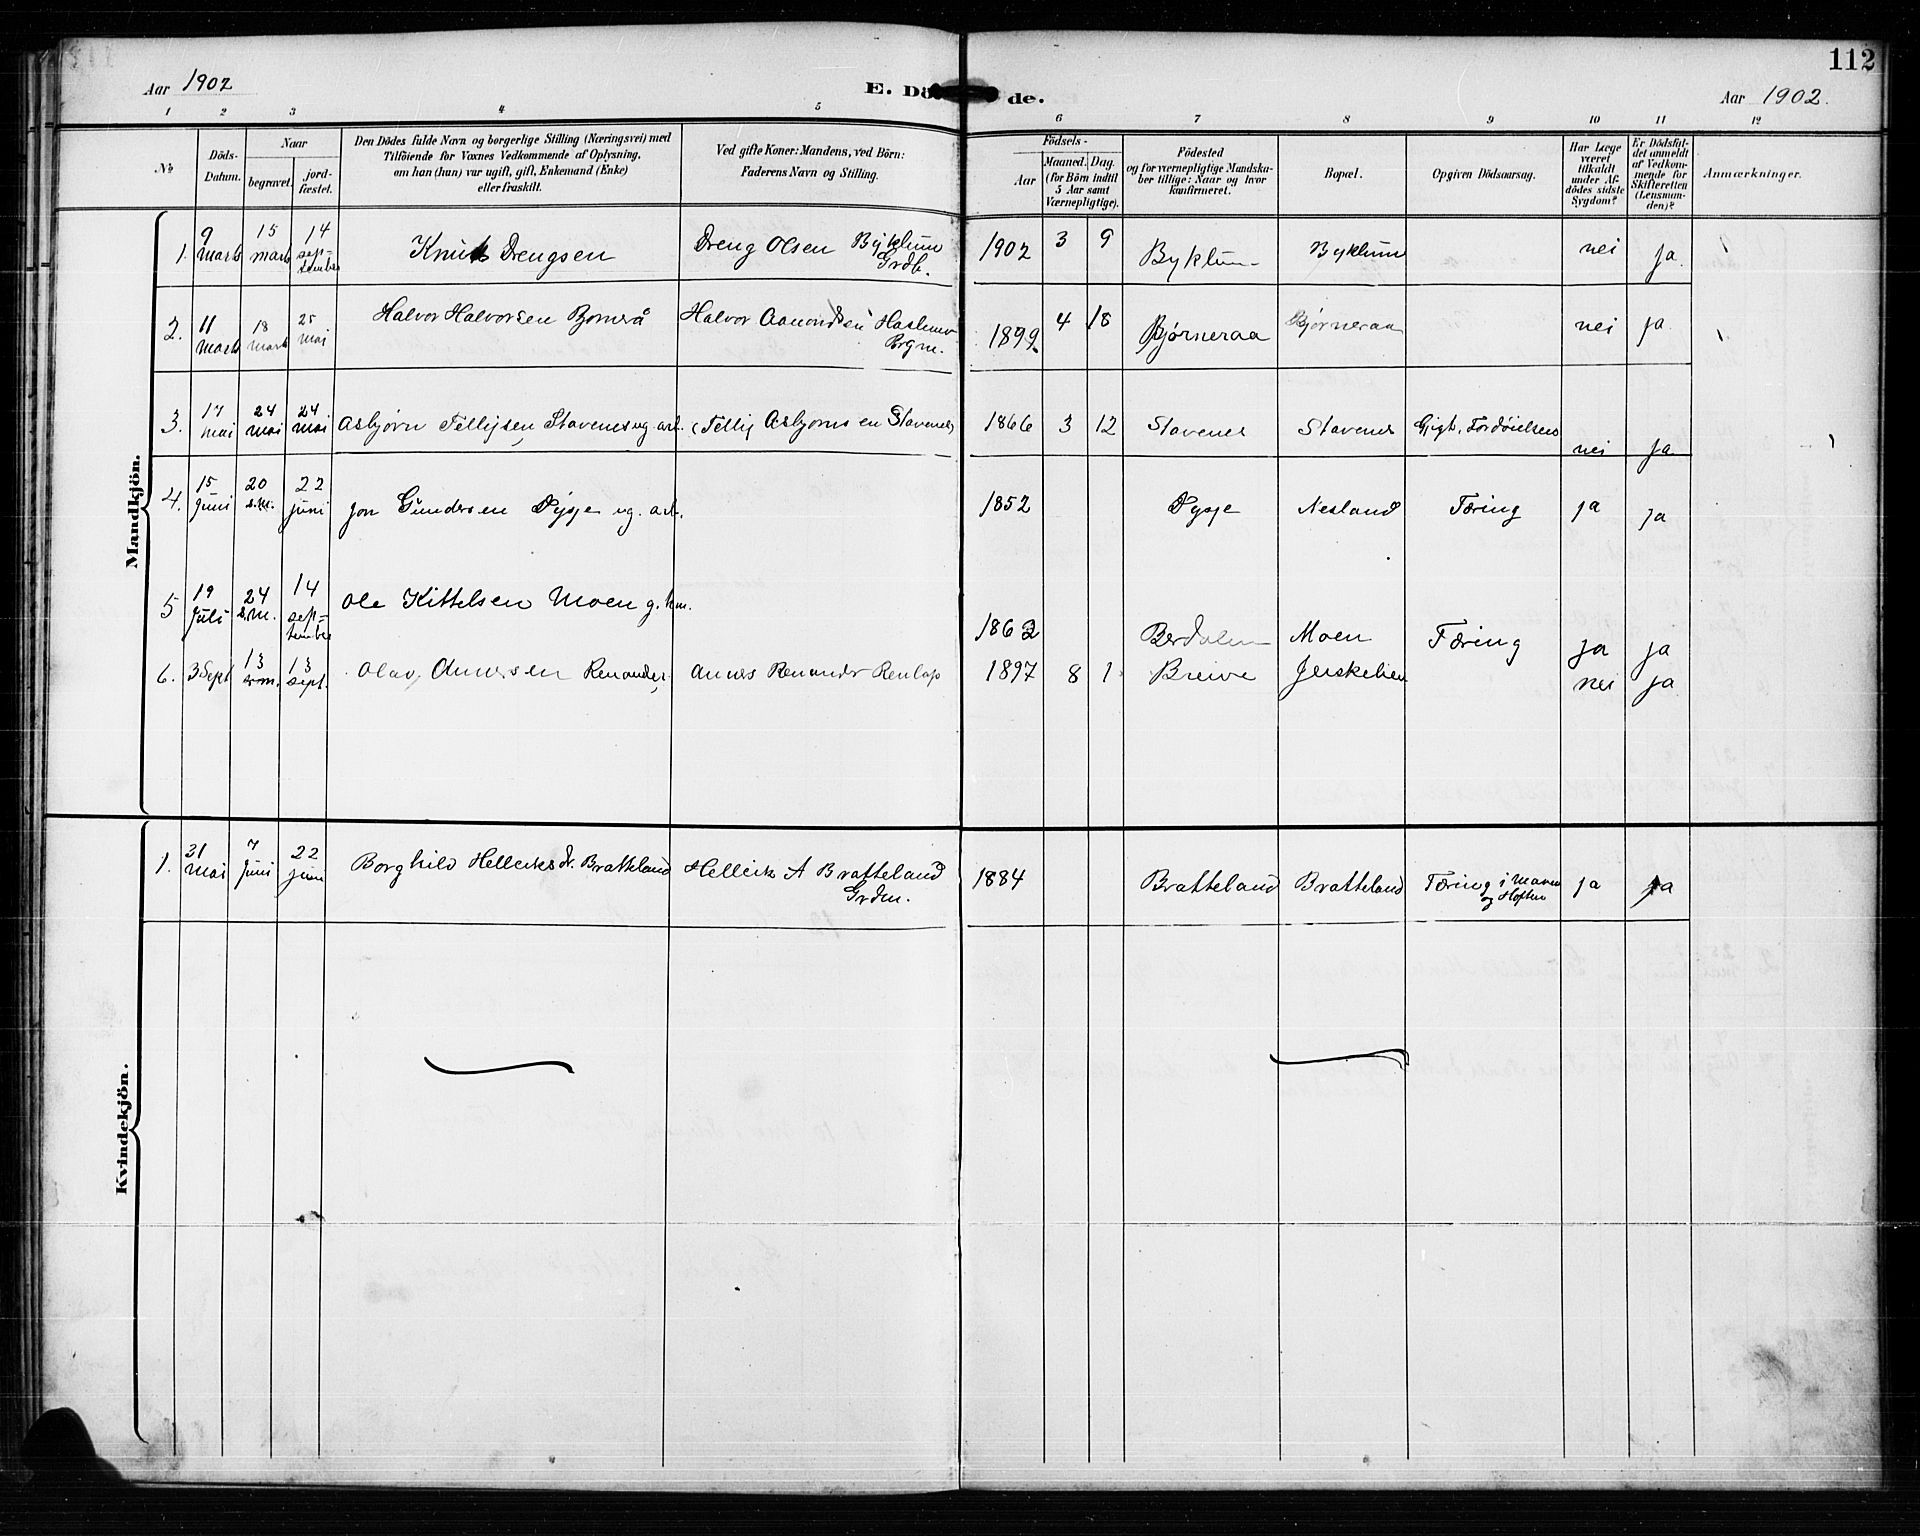 112
Aar 1902
E. Dö de.
Aar 1902.
1 2 3 4 5 6 7 8 9 10 11 12
No
Döds-Datum.
Naar
begravet.
jord-fæstet.
Den Dödes fulde Navn og borgerlige Stilling (Næringsvei) med
Tilföiende for Voxnes Vedkommende af Oplysning,
om han (hun) var ugift, gift, Enkemand (Enke)
eller fraskilt.
Ved gifte Koner: Mandens, ved Börn:
Faderens Navn og Stilling.
Födsels-
Aar
Maaned. Dag.
(for Börn indtil
5 Aar samt
Værnepligtige).
Födested
og for værnepligtige Mandska-
ber tillige: Naar og hvor
konfirmeret.
Bopæl.
Opgiven Dödsaarsag.
Har Læge
været
tilkaldt
under Af-
dödes sidste
Sygdom?
Er Dödsfal-
det anmeldt
af Vedkom-
mende for
Skifteretten
(Lensman-
den)?
Anmærkninger.
Mandkjön.
1. 9 marts 15 marts 14 september Knut Drengsen Dreng Olsen Byklum Grdb. 1902 3 9 Byklum Byklum nei ja.
2. 11 marts 18 marts 25 mai Halvor Halvorsen Bjørnerå Halvor Aamondsen 1899. 4 18 Bjørneraa Bjørneraa nei ja.
3. 17 mai 24 mai 24 mai Asbjørn Tellejsen Stavenes ug. arb. Tellej Asbjørnsen Stavenes 1866 3 12 Stavenes Stavenes Gigt, nei ja.
4. 15 juni 20 s.m. 22 juni Jon Gundersen Dysje ug. arb. 1852 Dysje Nesland Tæring ja ja
5 19 Juli 24 s.m. 14 september Ole Kittelsen Moen g. 1862 Berdalen Moen Tæring ja ja
6. 3 Sept 13 s.m. 13 sept. Olav Renander, Renander Renlap 1897 8 1 Breive Jerskelien nei ja
Kvindekjön.
1. 31 Mai 7 juni 22 juni Borghild Helleiksdr. Bratteland Helleik A Bratteland Grdm. 1884 Bratteland Bratteland Tæring i Maven og Hoften ja ja